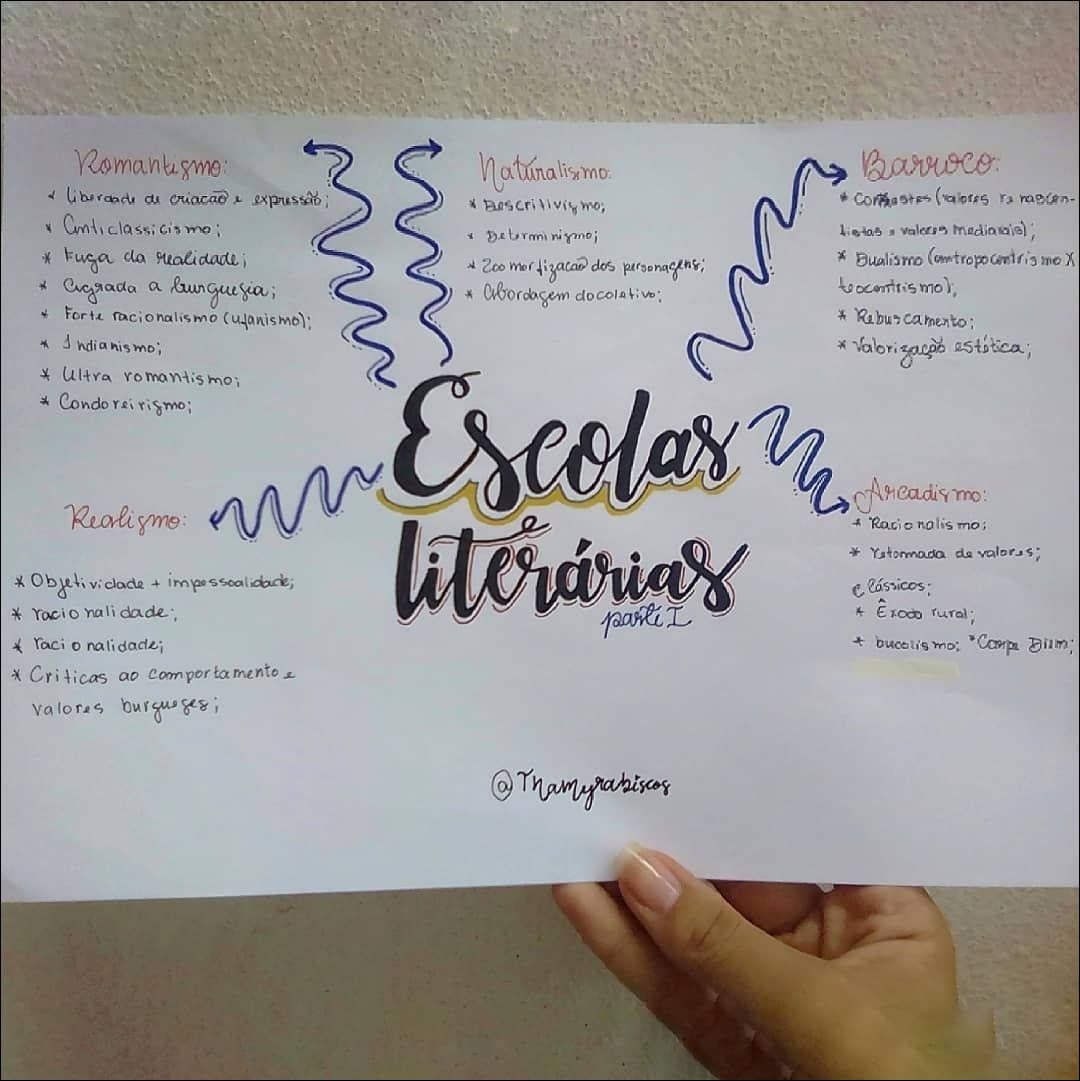 Romantismo:
* liberdade de criação e expressão;
* Anticlassicismo;
* Fuga da realidade;
* Agrada a burguesia;
* Forte racionalismo (ufanismo);
* Indianismo;
* Ultra romantismo;
* Condoreirismo;
Naturalismo:
* Descritivismo;
* Determinismo;
* Zoomorfização dos personagens;
* Abordagem do coletivo;
Barroco:
* (valores renascen-
tistas x valores mediavais);
* Dualismo (antropocentrismo X
teocentrismo);
* Rebuscamento;
* Valorização estética;
Escolas
literárias
parte I
Realismo:
* Objetividade + impessoalidade;
* racionalidade;
* racionalidade;
* Criticas ao comportamento e
valores burgueses;
Arcadismo:
* Racionalismo;
* retormada de valores;
clássicos;
* Êxodo rural;
* bucolismo; *Carpe Diem;
@Thamyrabiscos